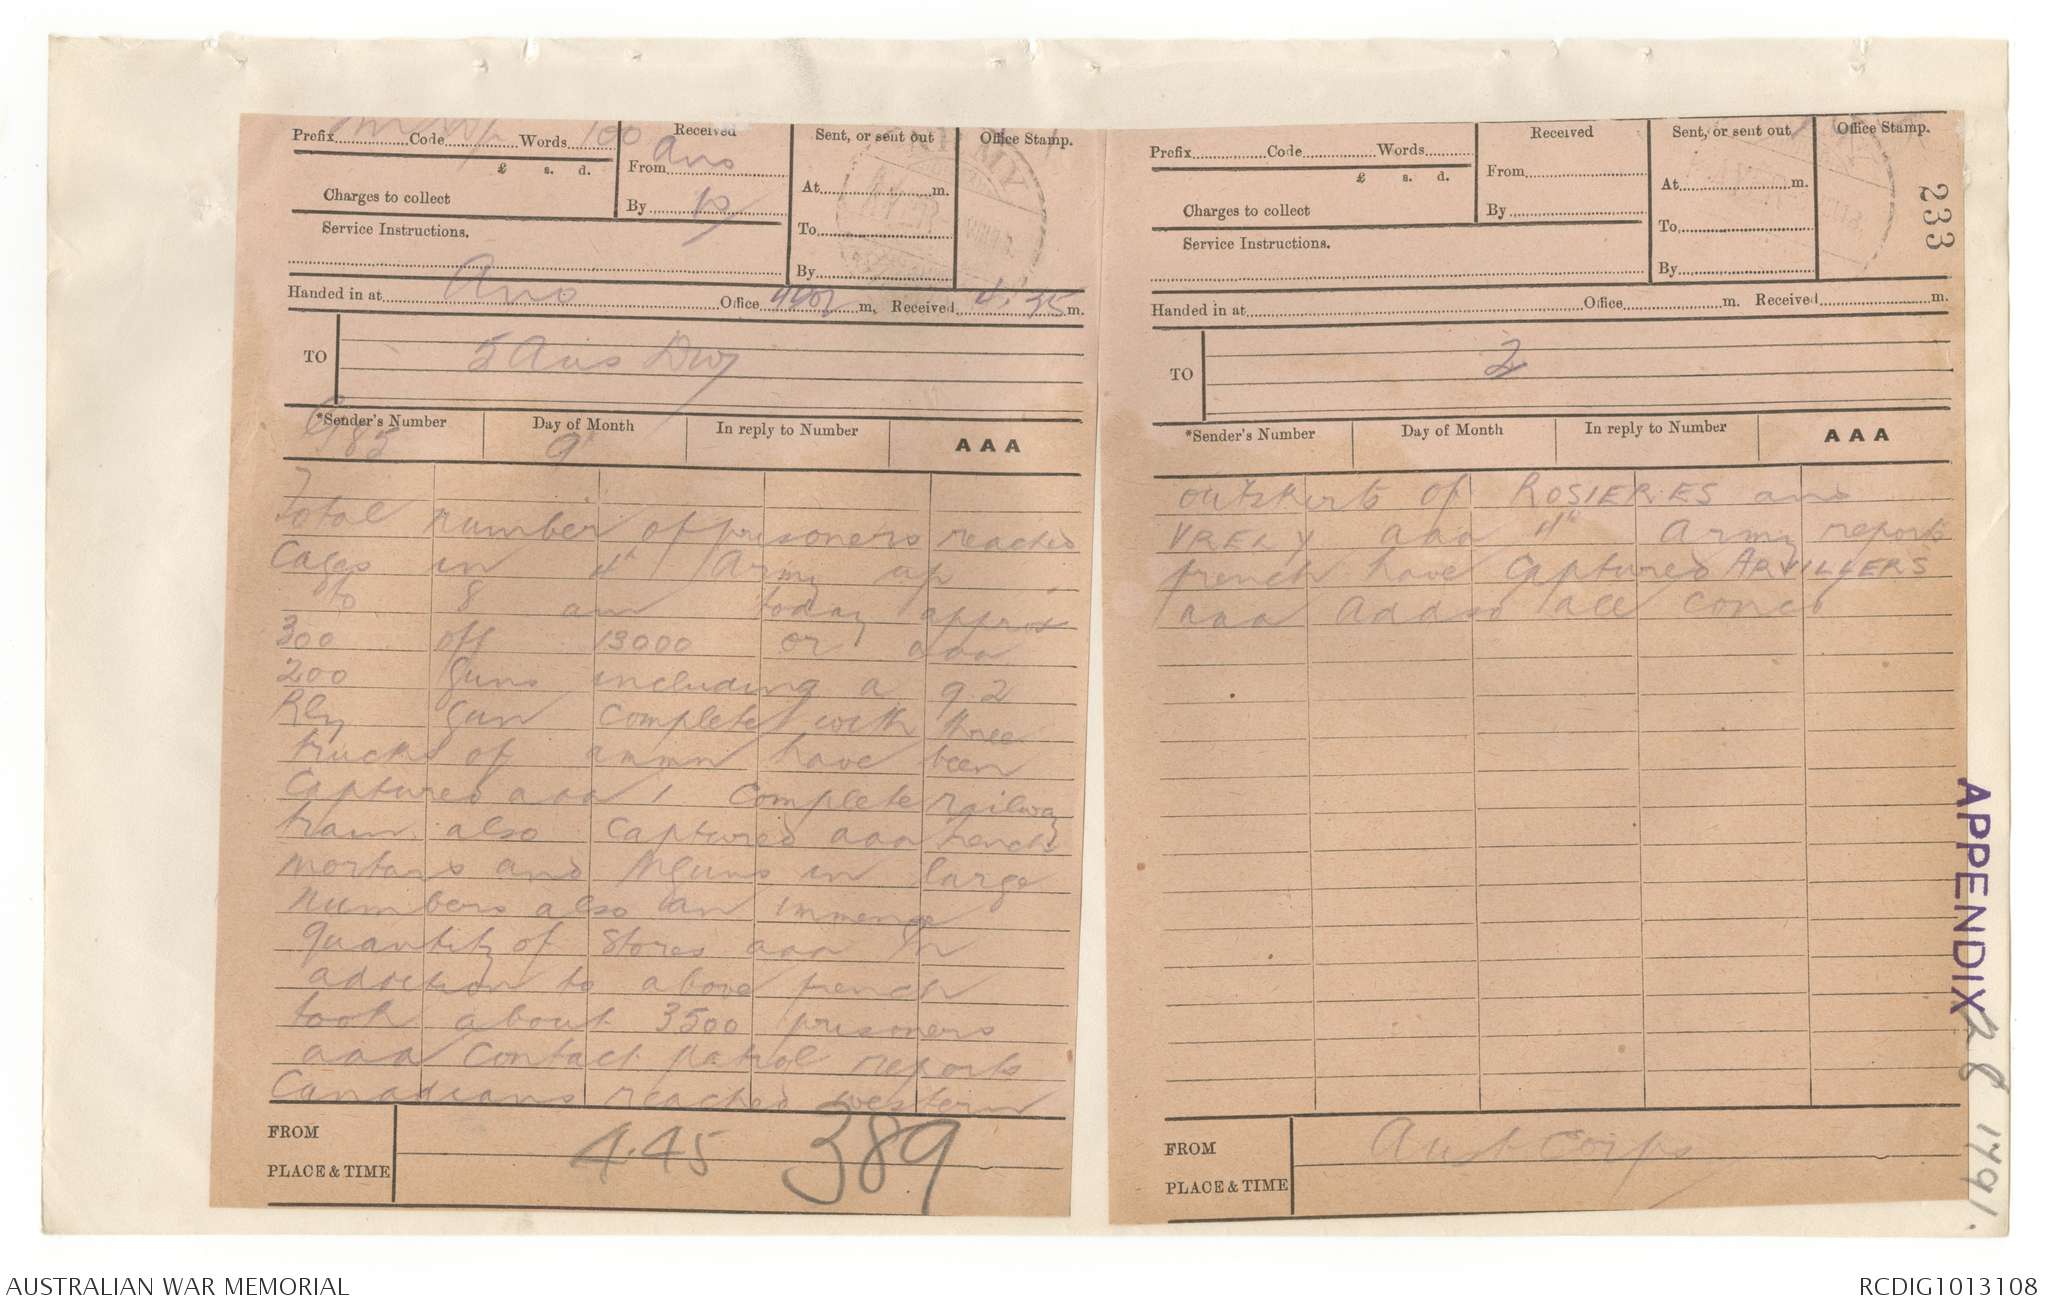 Prefix Code Words 100
Received
From Aus
By
£ s. d.
Charges to collect
Service Instructions.
Sent, or sent out
At m.
To
By
Office Stamp.
Handed in at Aus Office m. Received 4.35 m.
TO 5 Aus Div
*Sender's Number Day of Month In reply to Number AAA
G 85 9
Total number of prisoners reached
Cages in 4th Army up
to 8 am today approx
300 off 13000 or aaa
200 Guns including a 9.2
Rly gun complete with three
trucks of ammn have been
Captured aaa 1 complete railway
train also captured aaa trench
mortars and MGuns in large
numbers also an immense
quantity of stores aaa In
addition to above french
took about 3500 prisoners
aaa Contact patrol reports
Canadians reached western
FROM
PLACE & TIME
4.45 389
Prefix Code Words
Received
From
By
£ s. d.
Charges to collect
Service Instructions.
Sent, or sent out
At m.
To
By
Office Stamp.
Handed in at Office m. Received m.
TO 2
*Sender's Number Day of Month In reply to Number AAA
outskirts of ROSIERES and
VRELY aaa 4th Army reports
french have captured ARVILLERS
aaa Addsd all concd
FROM
PLACE & TIME
Aust Corps
233
APPENDIX 28
1791.
AUSTRALIAN WAR MEMORIAL
RCDIG1013108